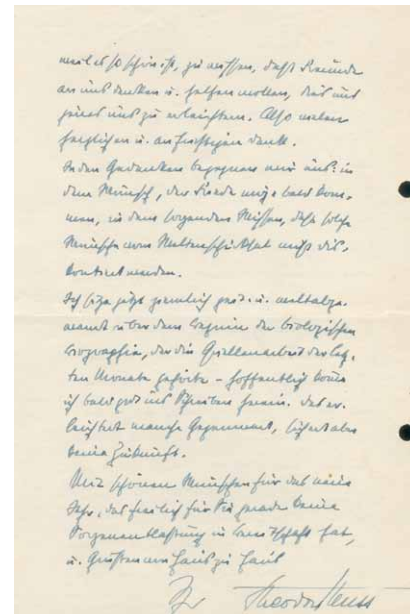 weil es so schön ist, zu wissen, daß Freunde
an uns denken u. helfen wollen, dies und
jenes uns zu erleichtern. Also meinen
herzlichen u. aufrichtigen Dank.
In den Gedanken begegnen wir uns: in
dem Wunsch, der Friede möge bald kom-
men, in dem sorgenden Wissen, daß solche
Wünsche vom Weltenschicksal nicht dis-
kontiert werden.
Ich sitze jetzt ziemlich grad- u. weltabge-
wandt über dem Beginn der biologischen
Biographie, der die Quellenarbeit der letz-
ten Monate gehörte – hoffentlich komme
ich bald gut ins Schreiben hinein. Das er-
leichtert manche Gegenwart, sichert aber
keine Zukunft.
Mit schönen Wünschen für das neue
Jahr, das freilich für Sie gerade keine
Sorgenentlastung in Bereitschaft hat,
u. Grüßen von Haus zu Haus
Ihr Theodor Heuss